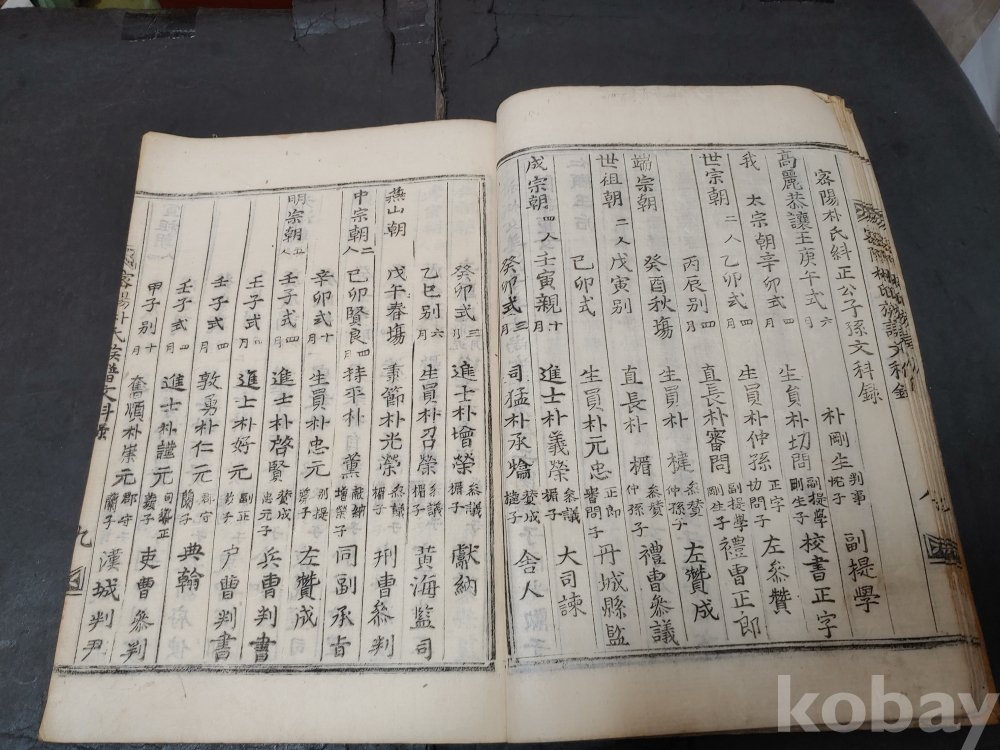 密陽朴氏糾正公子孫文科錄
高麗恭讓王庚午式 六月 朴剛生 判事 忱子 副提學
我 太宗朝辛卯式 四月 生負朴切問 副提學 剛生子 校書正字
二人 乙卯式 四月 生員朴仲孫 正字 切問子 左參贊
世宗朝 直長朴審問 副提學 剛生子 禮曹正郎
丙辰別 生員朴楗 參贊 仲孫子 左贊成
端宗朝 癸酉秋場 直長朴楣 參贊 仲孫子 禮曹參議
世祖朝 二人 戊寅別 生員朴元忠 正郎 審問子 丹城縣監
己卯式 進士朴義榮 參議 楣子 大司諫
成宗朝 四人 壬寅親 十月 司猛朴承爚 贊成 楗子 舍人
癸卯式 三月
癸卯式 三月 進士朴增榮 參議 楣子 獻納
乙巳別 六月 生員朴召榮 參議 楣子 黃海監司
燕山朝 戊午春場 秉節朴光榮 參議 楣子 刑曹參判
中宗朝 二人 己卯賢良 四月 持平朴薰 獻納 增榮子 同副承旨
辛卯式 十月 生員朴忠元 別提 子 左贊成
明宗朝 五人 壬子式 四月 進士朴啓賢 贊成 忠元子 兵曹判書
壬子式 四月 進士朴好元 副正 子 户曹判書
壬子式 四月 敦勇朴仁元 郡守 蘭子 典翰
壬子式 四月 進士朴謹元 子 吏曹參判
甲子別 十月 奮順朴崇元 郡守 蘭子 漢城判尹
密陽朴氏族譜文科錄
九
kobay